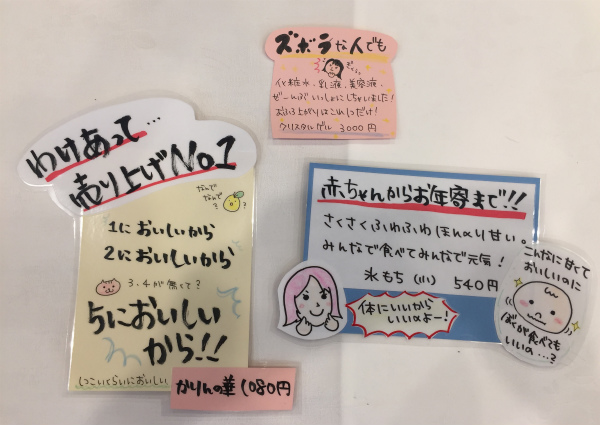 ズボラな人でも
化粧水・乳液・美容液・
ぜーんぶいっしょにしちゃいました!
おふろ上がりはこれ1つだけ!
クリスタルゲル 3000円
わけあって…
売り上げNo.1
なんで
なんで
?
?
1においしいから
2においしいから
3.4が無くて?
5においしい
から!!
しつこいくらいにおいしい
かりんの華 1080円
赤ちゃんからお年寄まで!!
さくさくふわふわほんのり甘い。
みんなで食べてみんなで元気!
氷もち(小) 540円
体にいいから
いいのよー!
こんなに甘くて
おいしいのに
ぼくが食べても
いいの…?